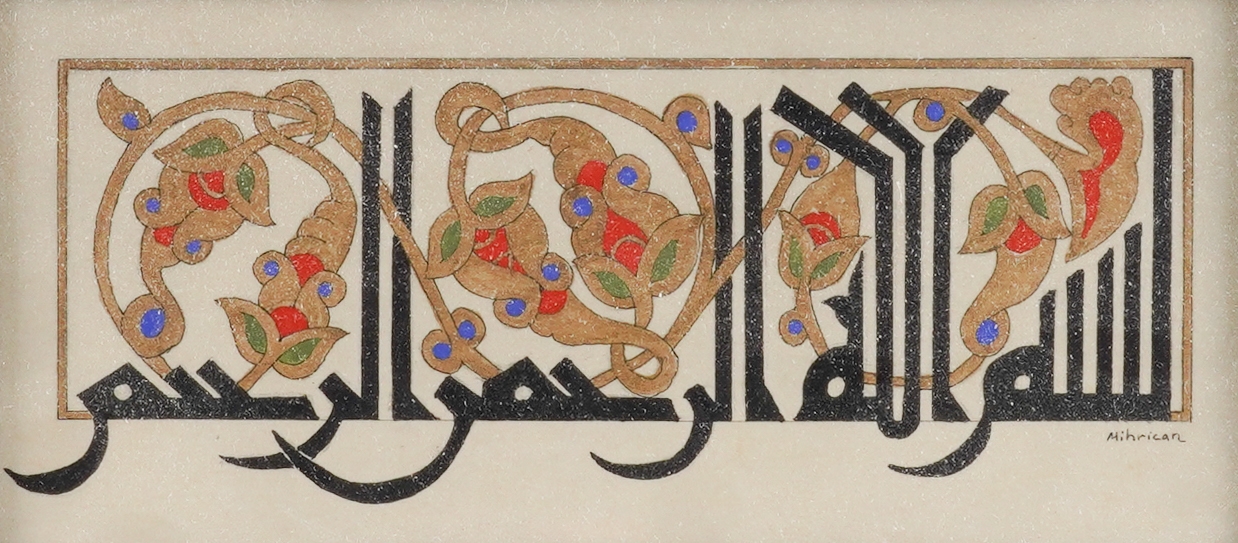 بسم الله الرحمن الرحيم
Mihrican